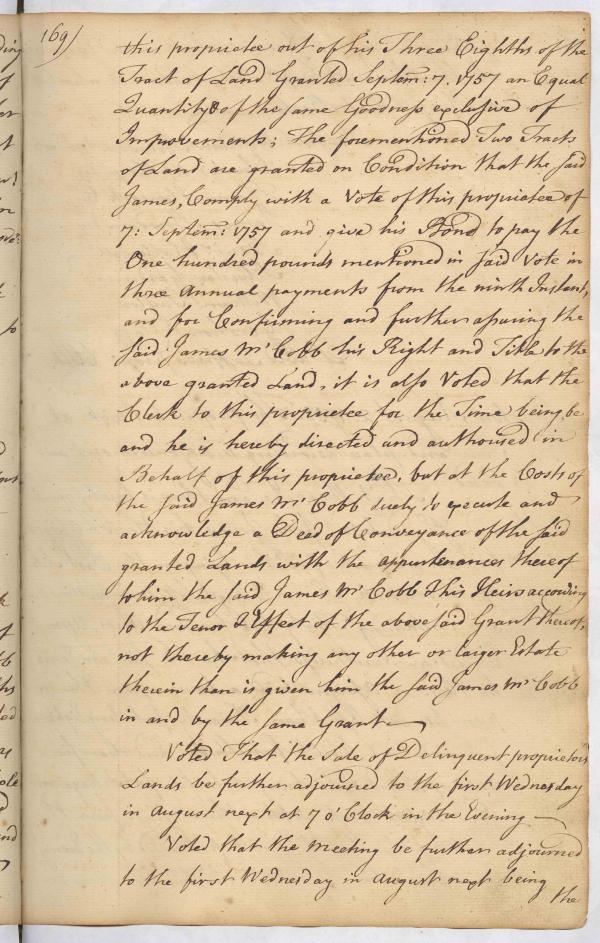 169)
this proprietee out of his Three Eighths of the
Tract of Land Granted Septem: 7. 1757 an Equal
Quantity & of the same Goodness exclusive of
Improvements; The forementioned Two Tracts
of Land are granted on Condition that the said
James, Comply with a Vote of this proprietee of
7: Septem: 1757 and give his Bond to pay the
One hundred pounds mentioned in said Vote in
three annual payments from the ninth Instant,
and for Confirming and further assuring the
said James Mc Cobb his Right and Title to the
above granted Land, it is also Voted that the
Clerk to this proprietee for the Time being be
and he is hereby directed and authorised in
Behalf of this proprietee, but at the Costs of
the said James Mc Cobb duely to execute and
acknowledge a Deed of Conveyance of the said
granted Lands with the appurtenances thereof
to him the said James Mc Cobb & his Heirs according
to the Tenor & Effect of the above said Grant thereof,
not thereby making any other or larger Estate
therein than is given him the said James Mc Cobb
in and by the same Grant
Voted That the Sale of Delinquent proprietors
Lands be further adjourned to the first Wednesday
in August next at 7 o'Clock in the Evening
Voted that the meeting be further adjourned
to the first Wednesday in August next being
the